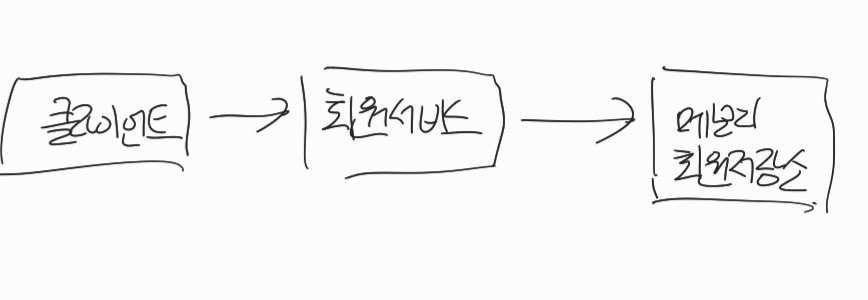 클라이언트
회원서비스
메모리
회원저장소